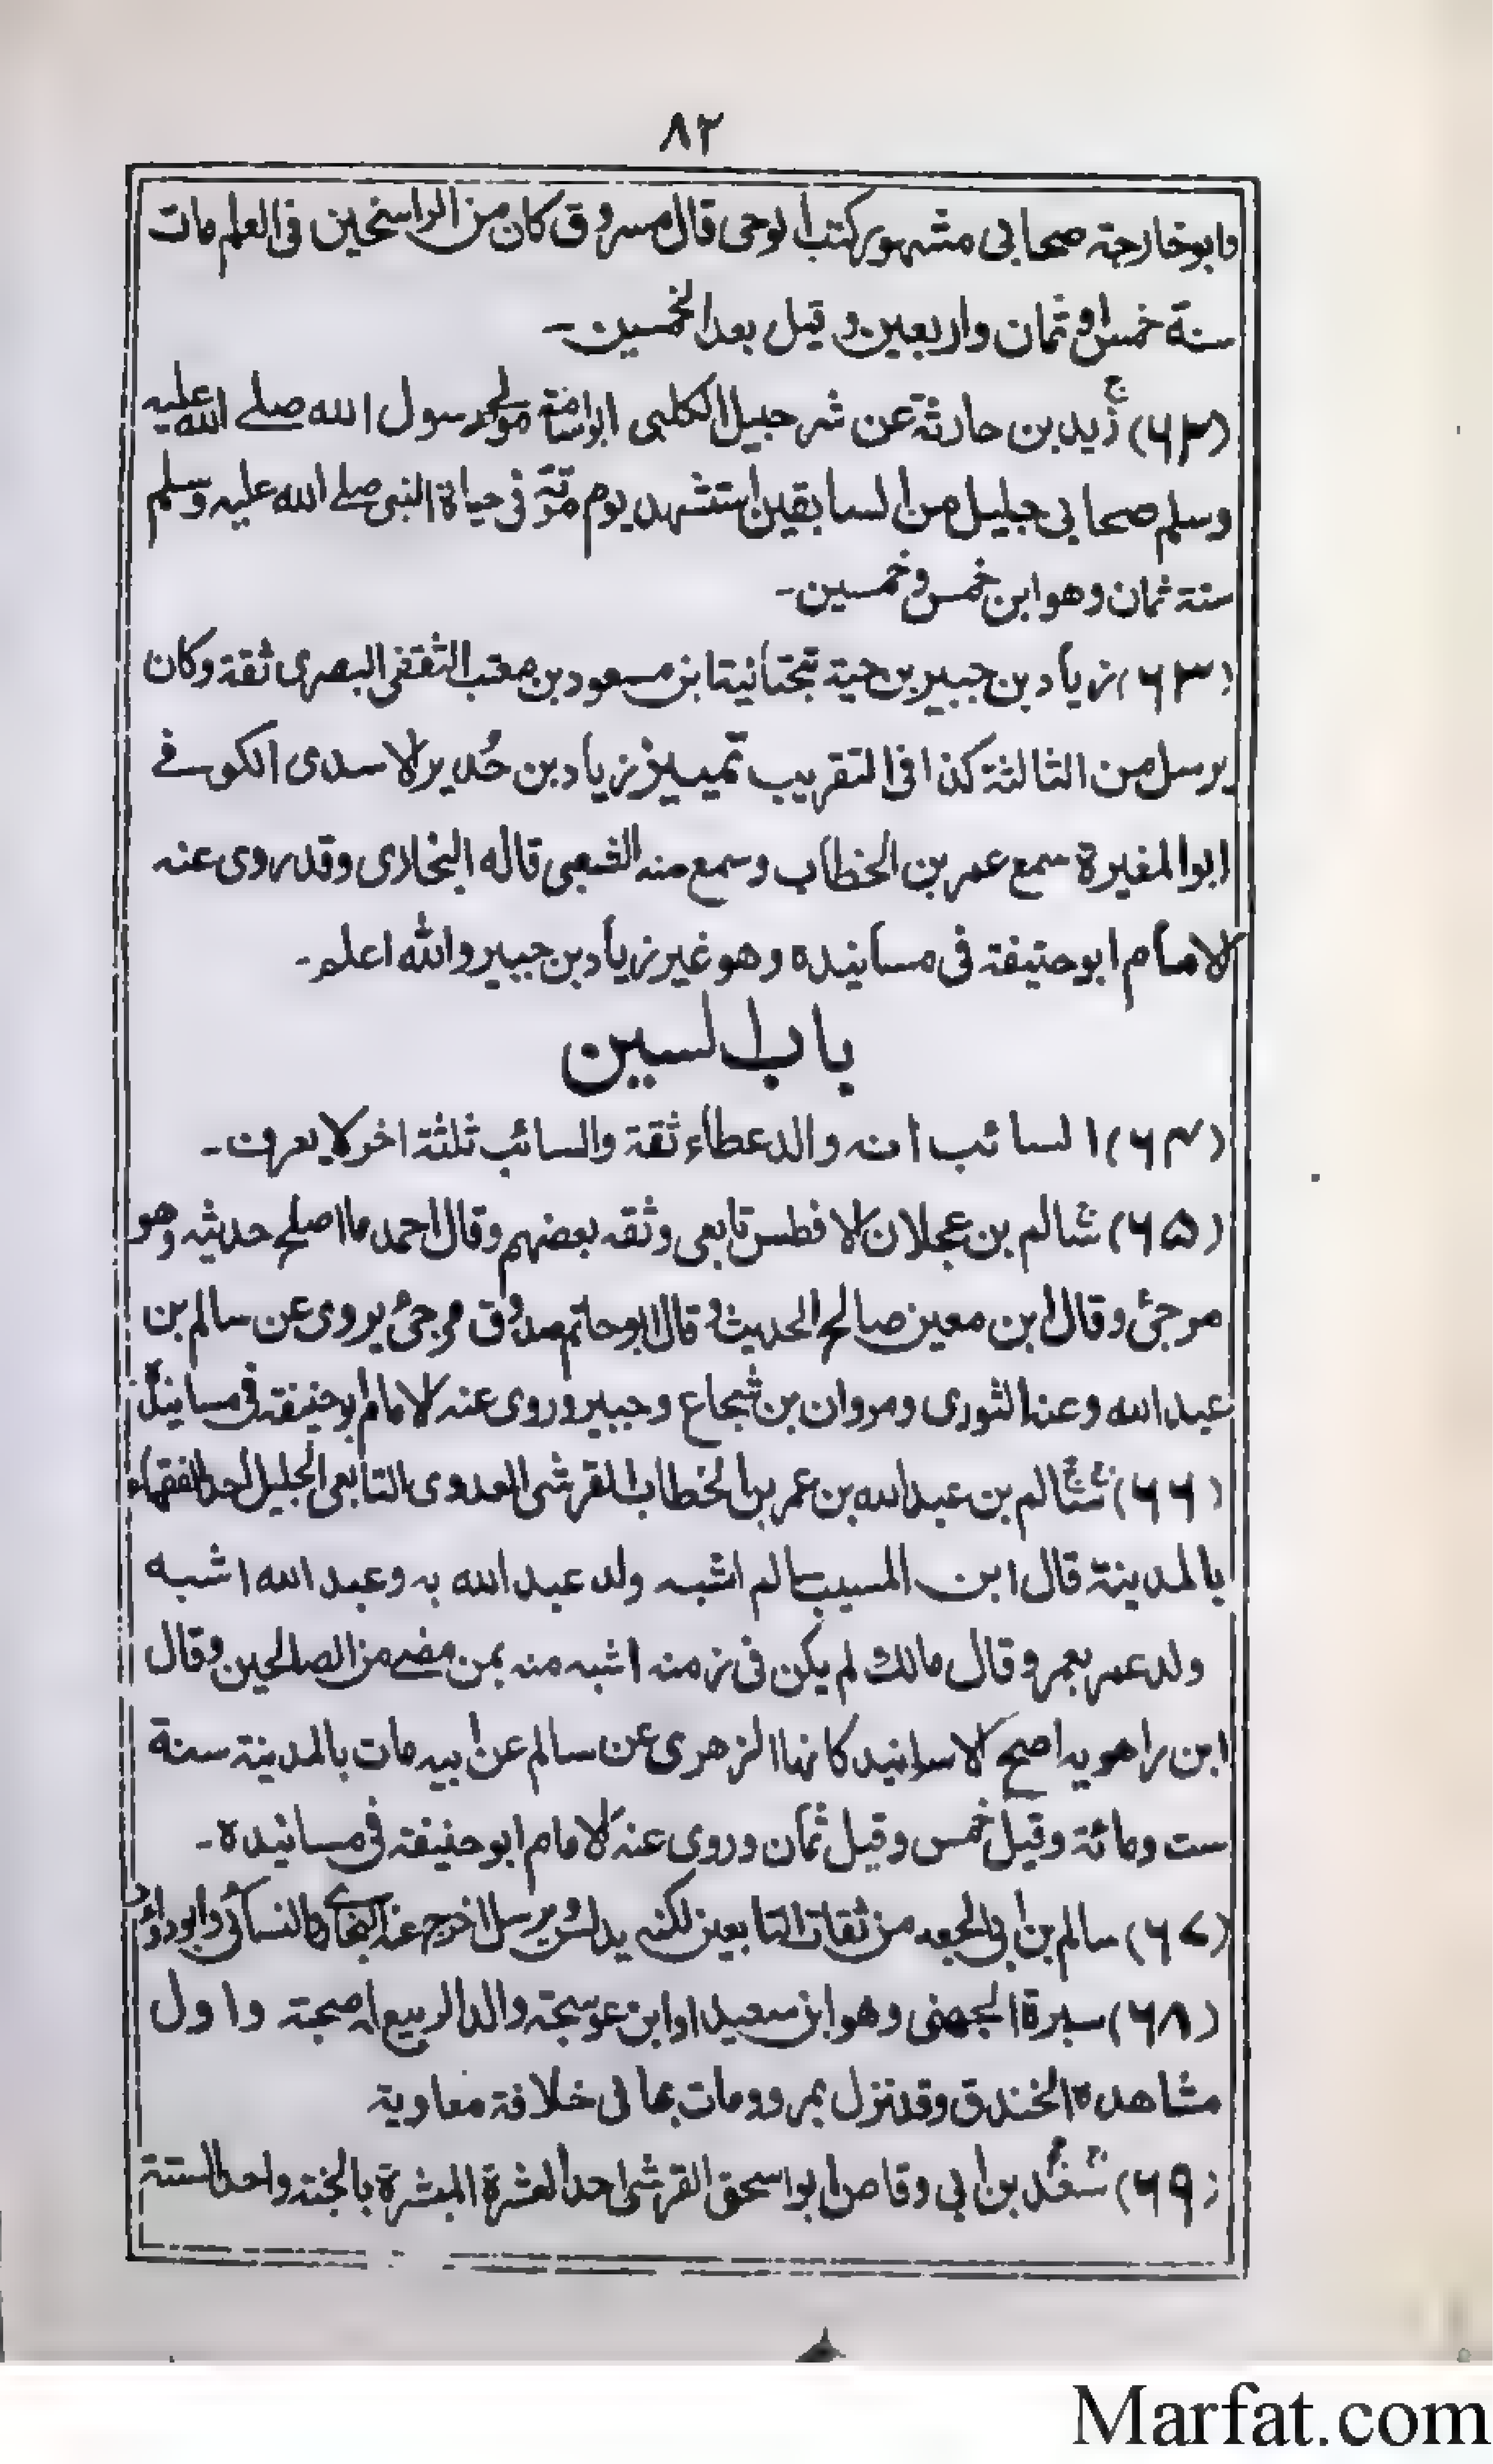 ٨٢
وابو خارجة صحابی مشهور کتب الوحی قال مسروق کان من الراسخین فی العلم مات
سنة خمس او ثمان واربعین وقیل بعد الخمسین۔
(٦٢) زید بن حارثة عن شرحبیل الکلبی ابو اسامة مولی رسول الله صلے الله علیه
وسلم صحابی جلیل من السابقین استشهد یوم موتة فی حیاة النبی صلے الله علیه وسلم
سنة ثمان وهو ابن خمس وخمسین۔
(٦٣) زیاد بن جبیر بن حیة بتحتانیة ابن مسعود بن معتب الثقفی البصری ثقة وکان
یرسل من الثالثة کذا فی التقریب تمییز زیاد بن حُدیر الاسدی الکوفے
ابو المغیرة سمع عمر بن الخطاب وسمع منه الشعبی قاله البخاری وقد روی عنه
الامام ابو حنیفة فی مسانیده وهو غیر زیاد بن جبیر والله اعلم۔
باب السین
(٦٤) السائب انه والد عطاء ثقة والسائب ثلثة اخر لا یعرف۔
(٦۵) سالم بن عجلان الافطس تابعی وثقه بعضهم وقال احمد ما اصلح حدیثه وهو
مرجئ وقال ابن معین صالح الحدیث وقال ابو حاتم صدوق مرجئ یروی عن سالم بن
عبد الله وعنه الثوری ومروان بن شجاع وجبیر وروی عنه الامام ابو حنیفة فی مسانیده
(٦٦) سالم بن عبد الله بن عمر بن الخطاب القرشی العدوی التابعی الجلیل احد الفقهاء
بالمدینة قال ابن المسیب سالم اشبه ولد عبد الله به وعبد الله اشبه
ولد عمر بعمر وقال مالك لم یکن فی زمنه اشبه منه بمن مضے من الصالحین وقال
ابن راهویه اصح الاسانید کانها الزهری عن سالم عن ابیه مات بالمدینة سنة
ست ومائة وقیل خمس وقیل ثمان وروی عنه الامام ابو حنیفة فی مسانیده۔
(٦٧) سالم بن ابی الجعد من ثقات التابعین لکنه یدلس ویرسل اخرج عنه البخاری والنسائی وابو داؤد
(٦٨) سبرة الجهنی وهو ابن سعید او ابن عوسجة والد الربیع له صحبة واول
مشاهده الخندق وقد نزل بمرو ومات بها فی خلافة معاویة
(٦٩) سعد بن ابی وقاص ابو اسحق القرشی احد العشرة المبشرة بالجنة واحد الستة
Marfat.com